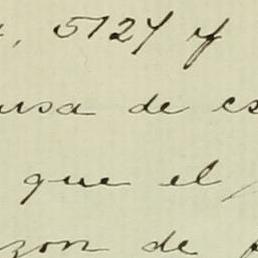 , 5127 y
usa de es
que el
zon de